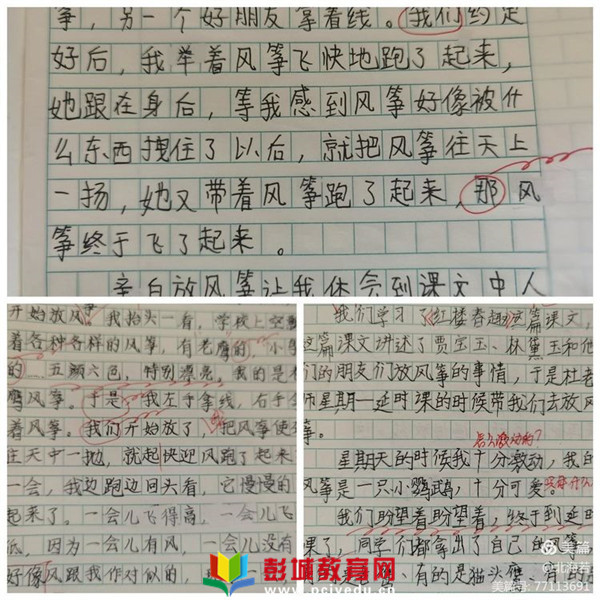 筝，另一个好朋友拿着线。我们约定
好后，我举着风筝飞快地跑了起来，
她跟在身后，等我感到风筝好像被什
么东西拽住了以后，就把风筝往天上
一扬，她又带着风筝跑了起来，那风
筝终于飞了起来。
亲自放风筝让我体会到课文中人
开始放风 我抬头一看，学校上空
着各种各样的风筝，有老鹰的，小
的 五颜六色，特别漂亮。我的是
鹰风筝。于是 我左手拿线，右手
着风筝。我们开始放了，把风筝使
往天中一抛，就起快迎风跑了起来
一会，我边跑边回头看，它慢慢的
起来了。一会儿飞得高，一会儿飞
低，因为一会儿有风，一会儿没有
好像风跟我作对似的，
我们学习了红楼春趣这篇课文，
这篇课文讲述了贾宝玉、林黛玉和他
们的朋友们放风筝的事情，于是杜老
师星期一延时课的时候带我们去放风
筝。
星期天的时候我十分激动，我的
风筝是一只小鹦鹉，十分可爱。
我们盼望着盼望着，终于到延时
课了，同学们都拿出了自己的风筝，
有的是猫头鹰，有的
彭城教育网
www.pcjyedu.cn
美篇
美篇号: 77113691